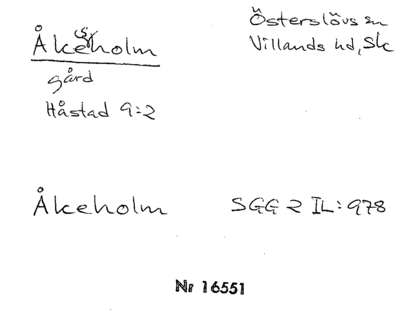 Åkeholm
Österslövs sn
Villands hd, Sk
gård
Håstad 9:2
Åkeholm
SGG 2 IL: 978
Nr 16551